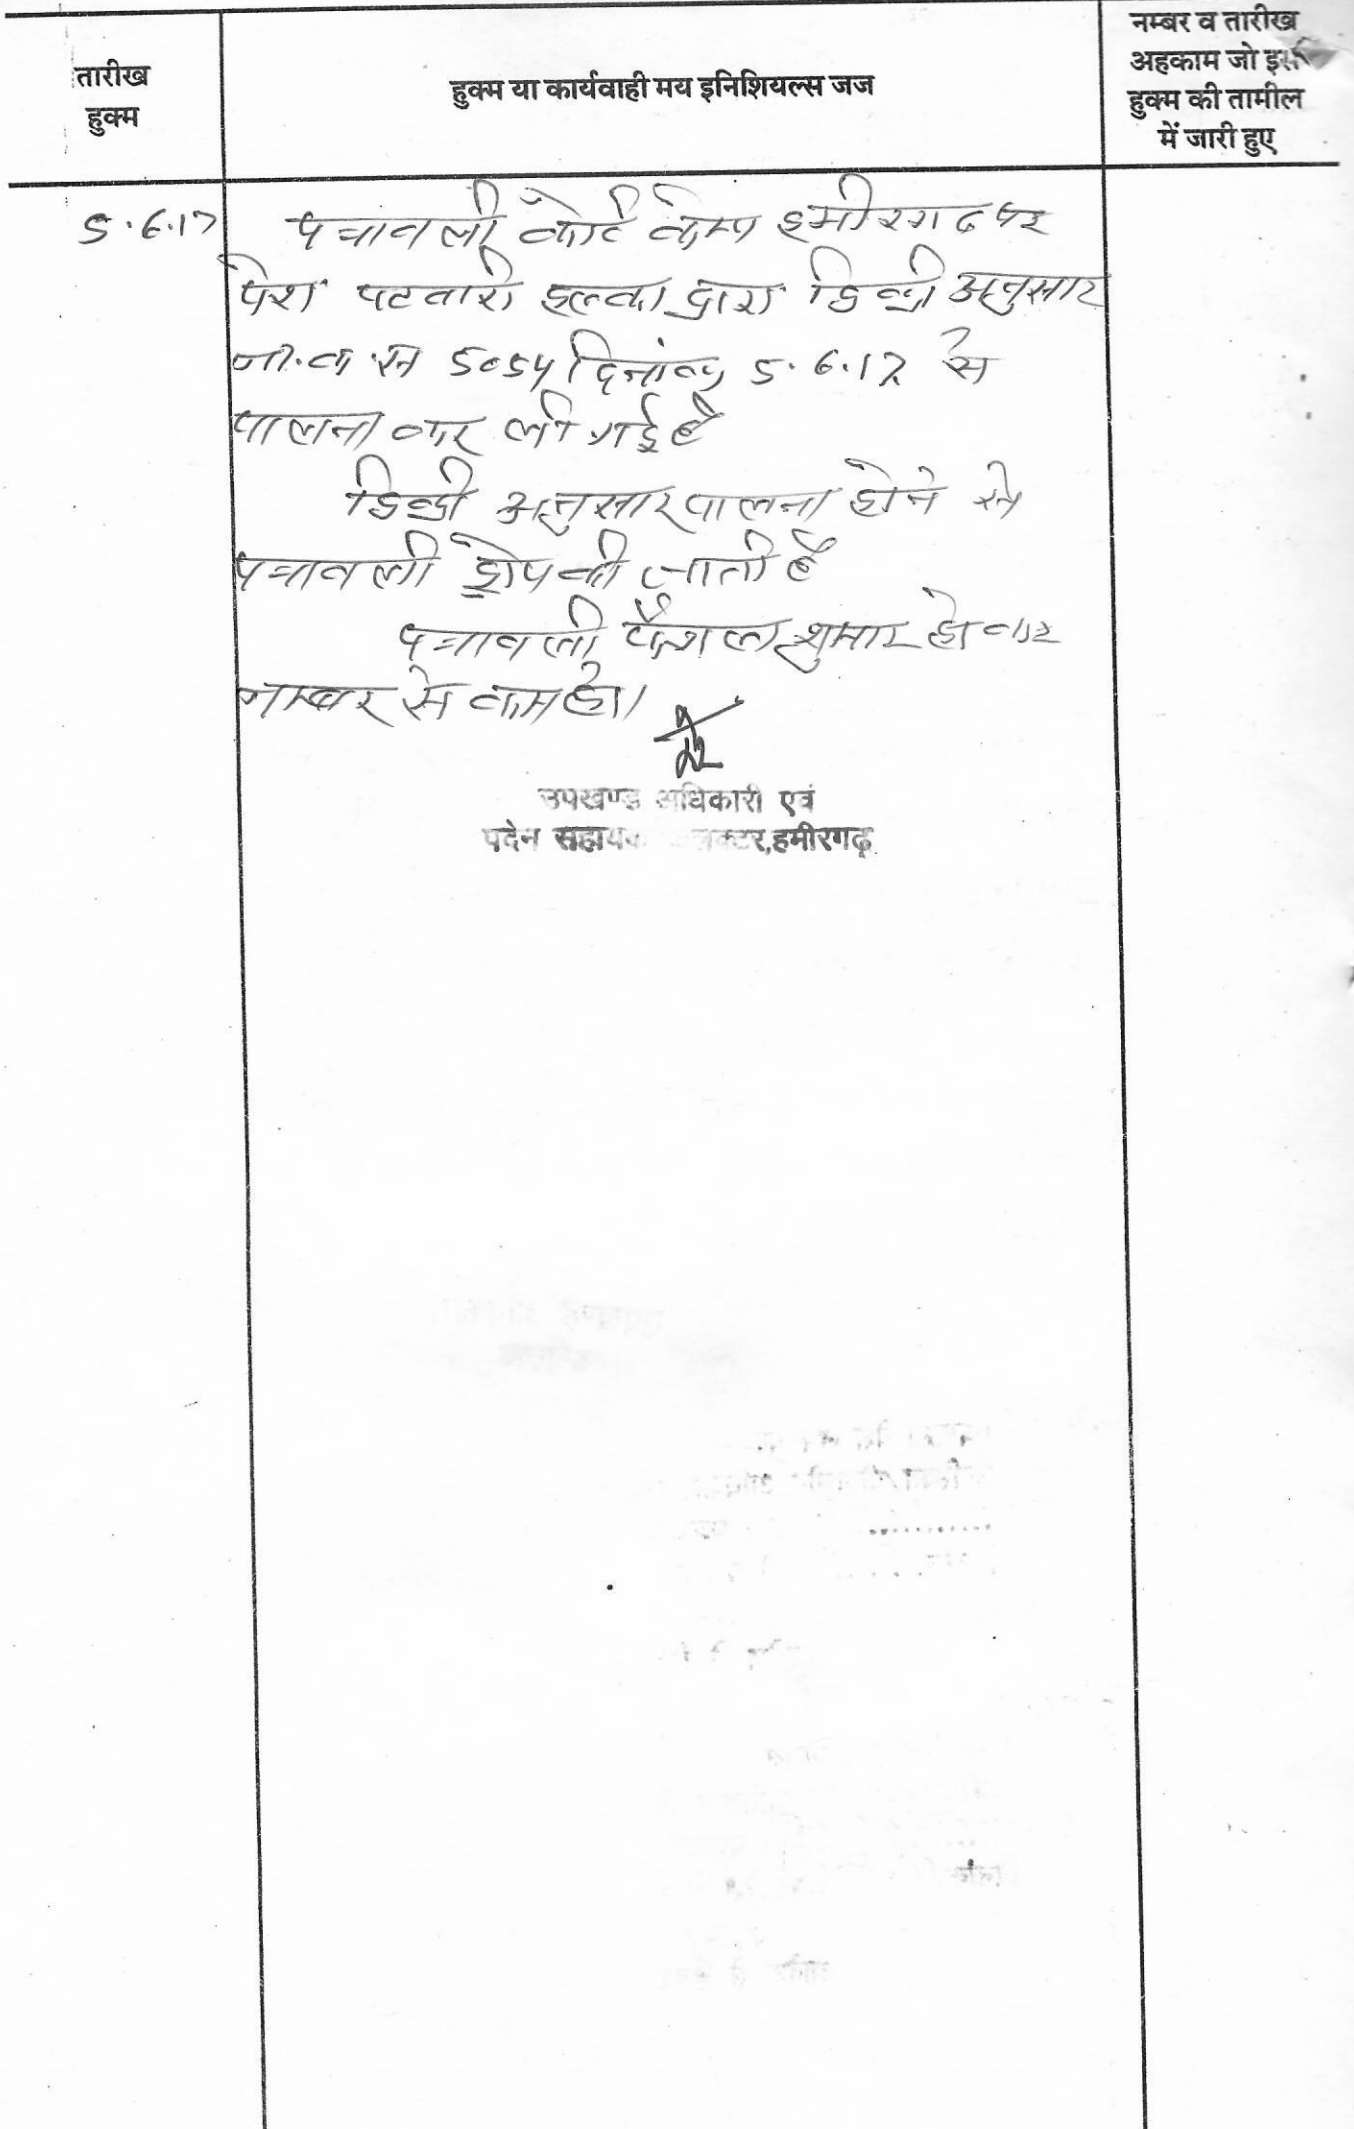 तारीख
हुक्म
हुक्म या कार्यवाही मय इनिशियल्स जज
नम्बर व तारीख
अहकाम जो इस
हुक्म की तामील
में जारी हुए
5.6.17
पत्रावली कोर्ट केम्प हमीरगढ पर
पेश पटवारी हल्का द्वारा डिक्री अनुसार
ना.क.सं 5054 दिनांक 5.6.17 से
पालना कर ली गई है
डिक्री अनुसार पालना होने से
पत्रावली ड्रोप की जाती है
पत्रावली फैशल शुमार होकर
नम्बर से कम हो।
उपखण्ड अधिकारी एवं
पदेन सहायक कलक्टर,हमीरगढ़